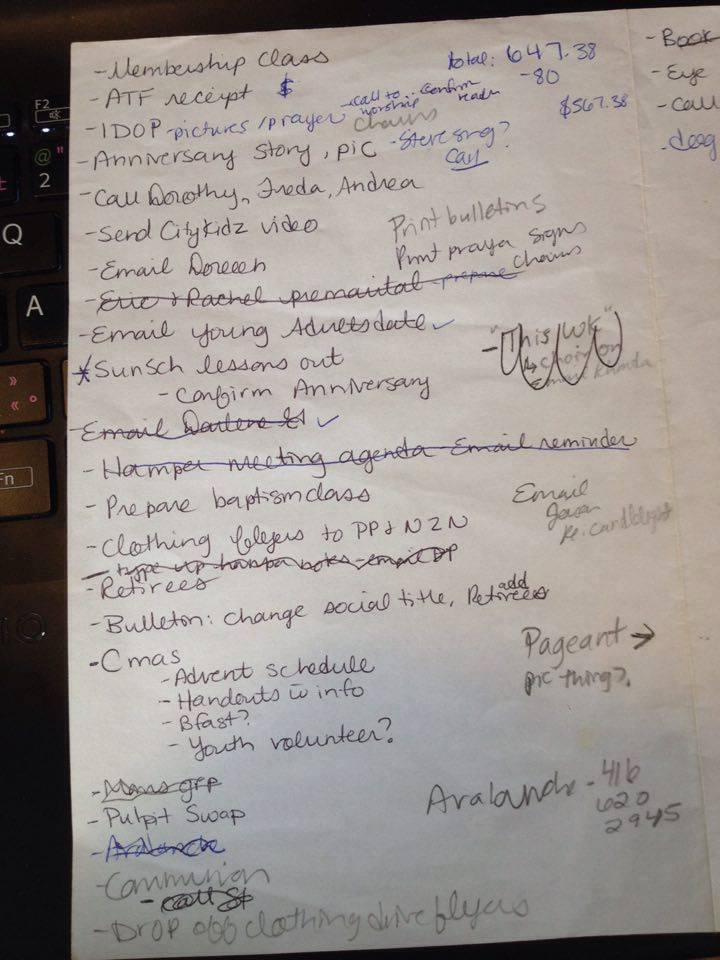 - Membership Class
total: 647.38
- ATF receipt $
-80
$567.38
- IDOP - pictures / prayer chains
- call to worship
- confirm reader
- Anniversary story, pic
- Steve sing?
Call
- Call Dorothy, Freda, Andrea
- Send Citykidz video
Print bulletins
- Email Doreen
Print prayer signs
chains
- Eric & Rachel premarital - prepare
- Email young Adults date ✓
- "This Wk"
* Sunsch lessons out
- Confirm Anniversary
- Email Darlene ✓
- Hamper meeting agenda Email reminder
- Prepare baptism class
Email
Jason
re: candlelight
- Clothing flyers to PP & N2N
- type up hamper notes - email
- Retirees
- Bulletin: change social title, add Retirees
- Cmas
- Advent schedule
- Handouts w info
- Bfast?
- Youth volunteer?
Pageant →
pic thing?
- Mens grp
- Pulpit Swap
- Avalanche
Avalanche - 416
620
2945
- Communion
- call St
- Drop off clothing drive flyers
- Book
- Eye
- Call